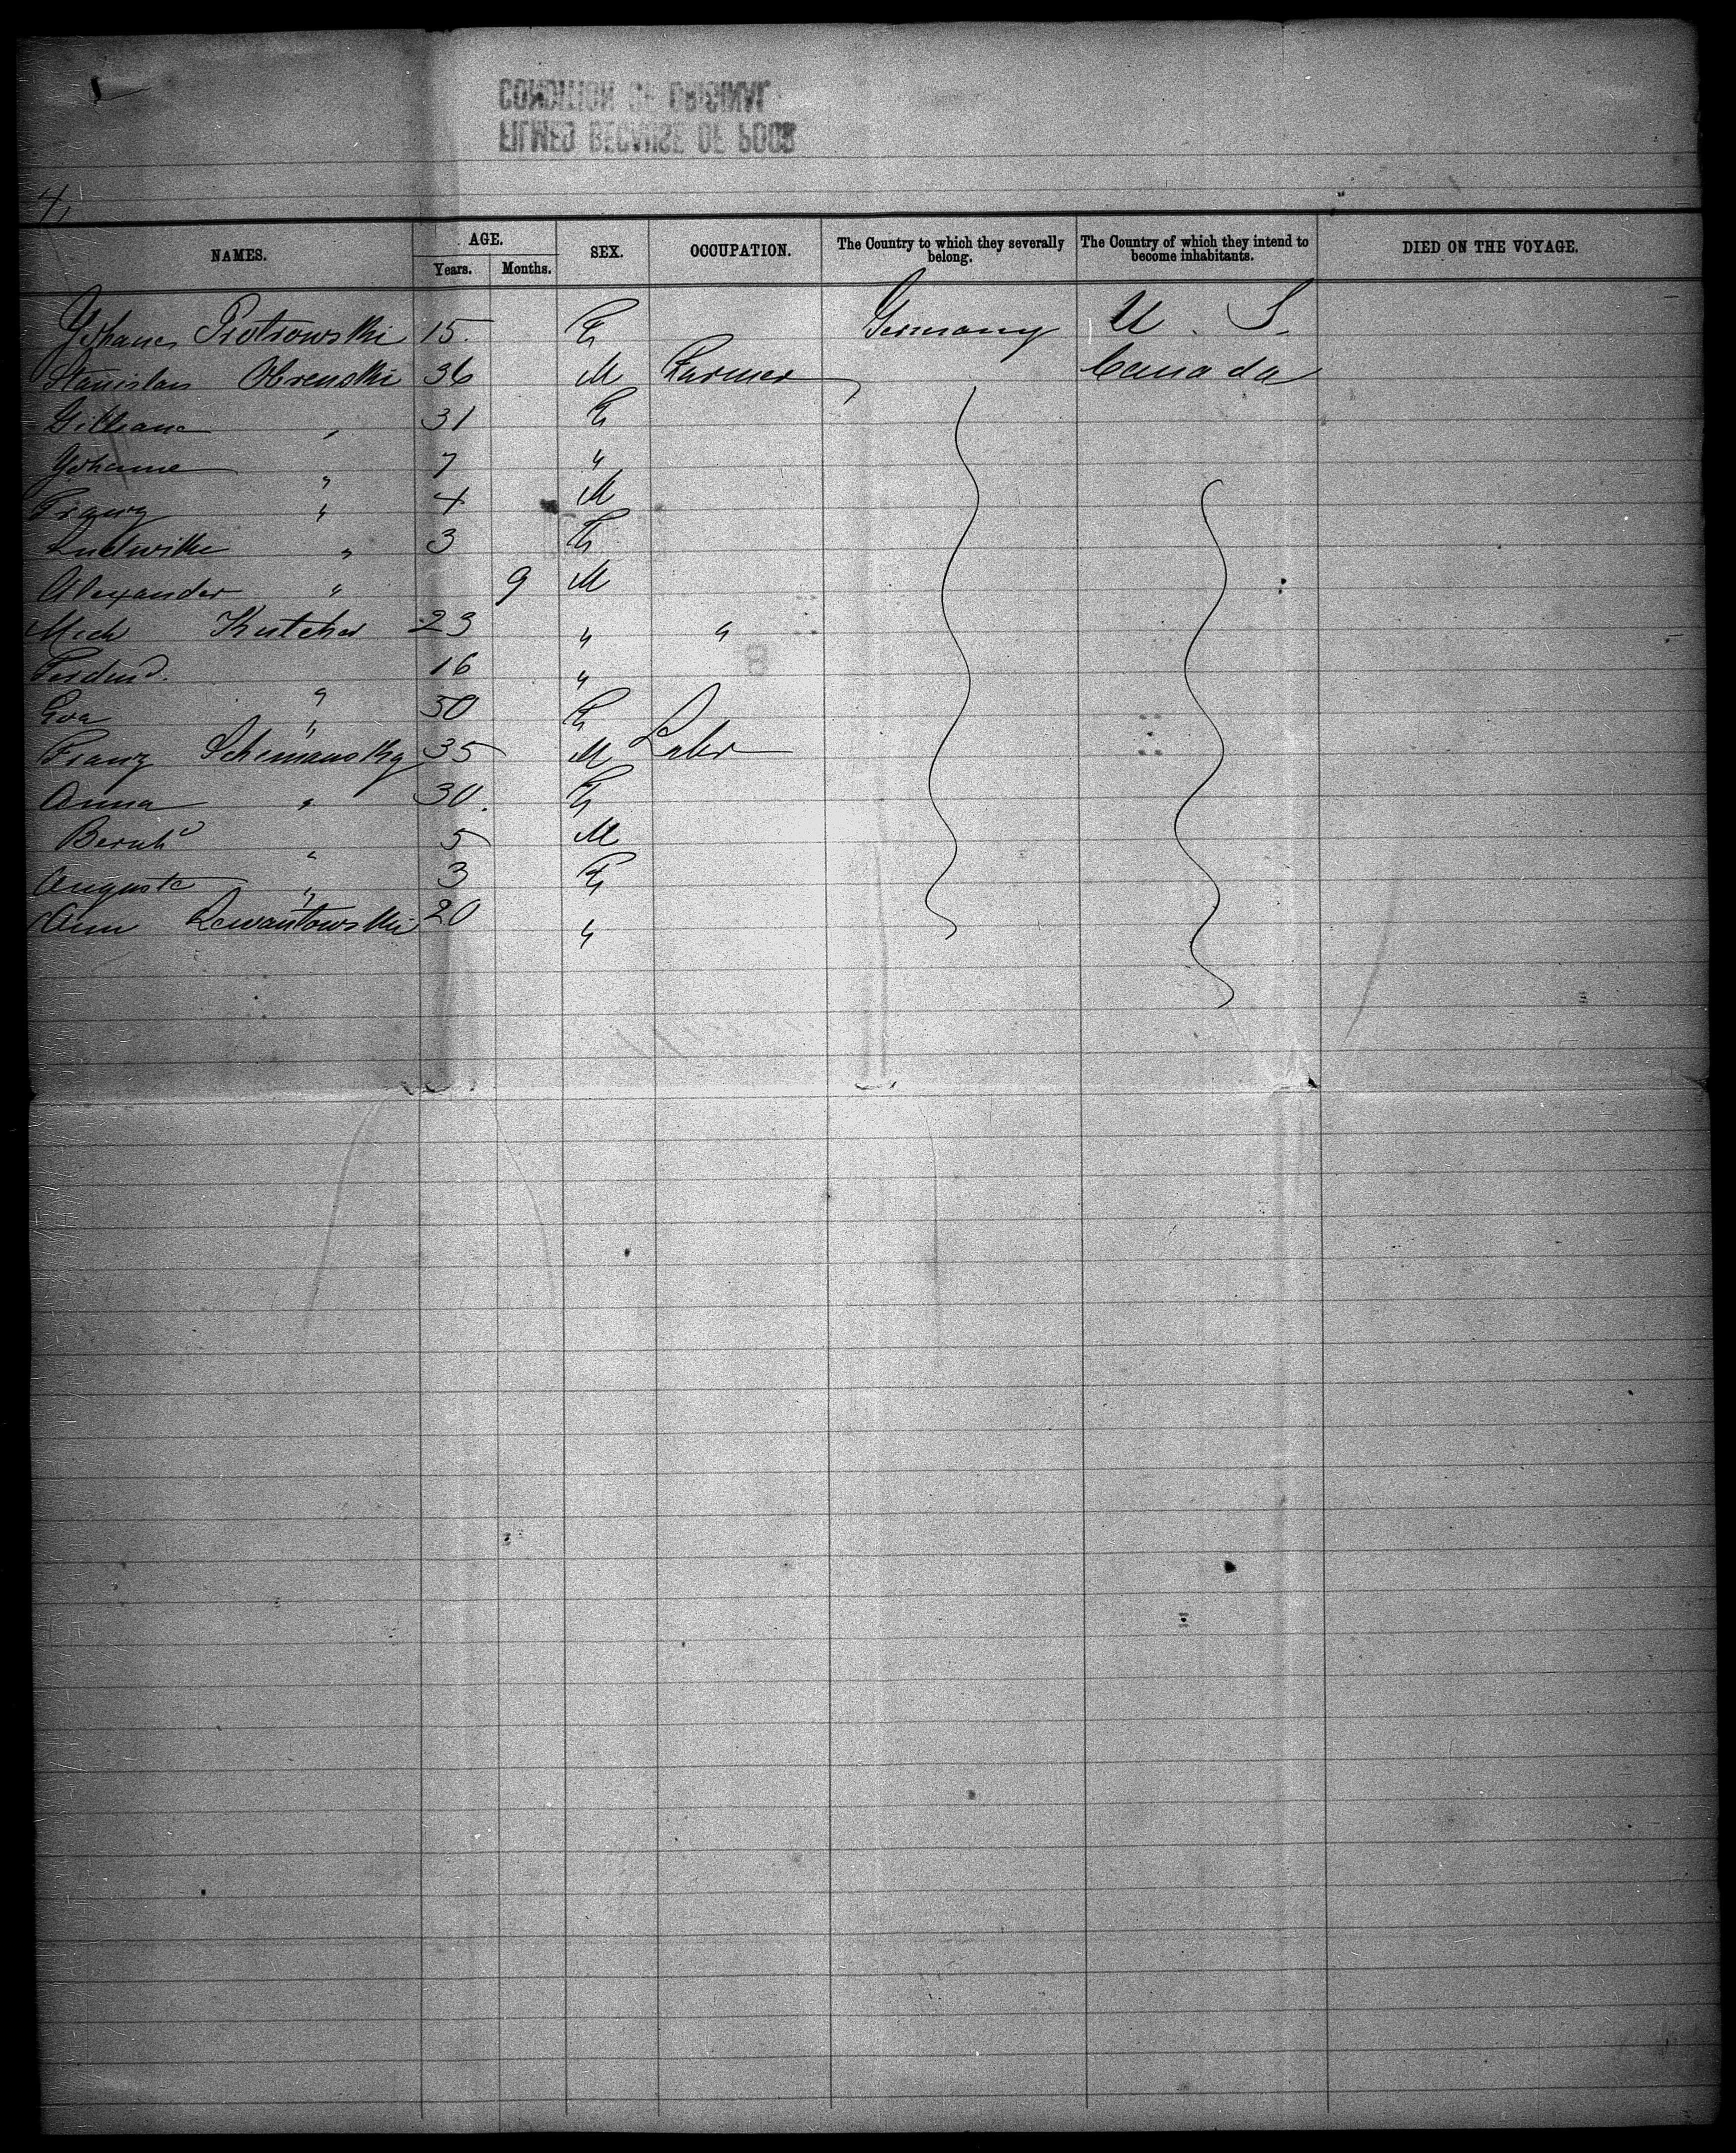 CONDITION OF ORIGINAL
FILMED BECAUSE OF POOR
4
NAMES. AGE. Years. Months. SEX. OCCUPATION. The Country to which they severally belong. The Country of which they intend to become inhabitants. DIED ON THE VOYAGE.
Piotrowski 15. F Germany U. S.
Stanislaus Obrenski 36 M Farmer Canada
31 F
Johanne " 7 "
Franz " 4 M
Ludwike " 3 F
Alexander " 9 M
Mich Kutcher 23 " "
Ferdind. " 16 "
Eva " 50 F
Franz Schimansky 35 M Labr
Anna " 30. F
Bernhd " 5 M
Auguste " 3 F
Ann Lewantowski 20 "